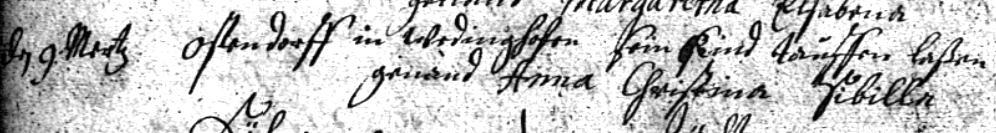 genand Margaretha Elsabena
den 9 Mertz Ostendorff in Wedinghofen sein Kind tauffen laßen
genand Anna Christina Sibilla